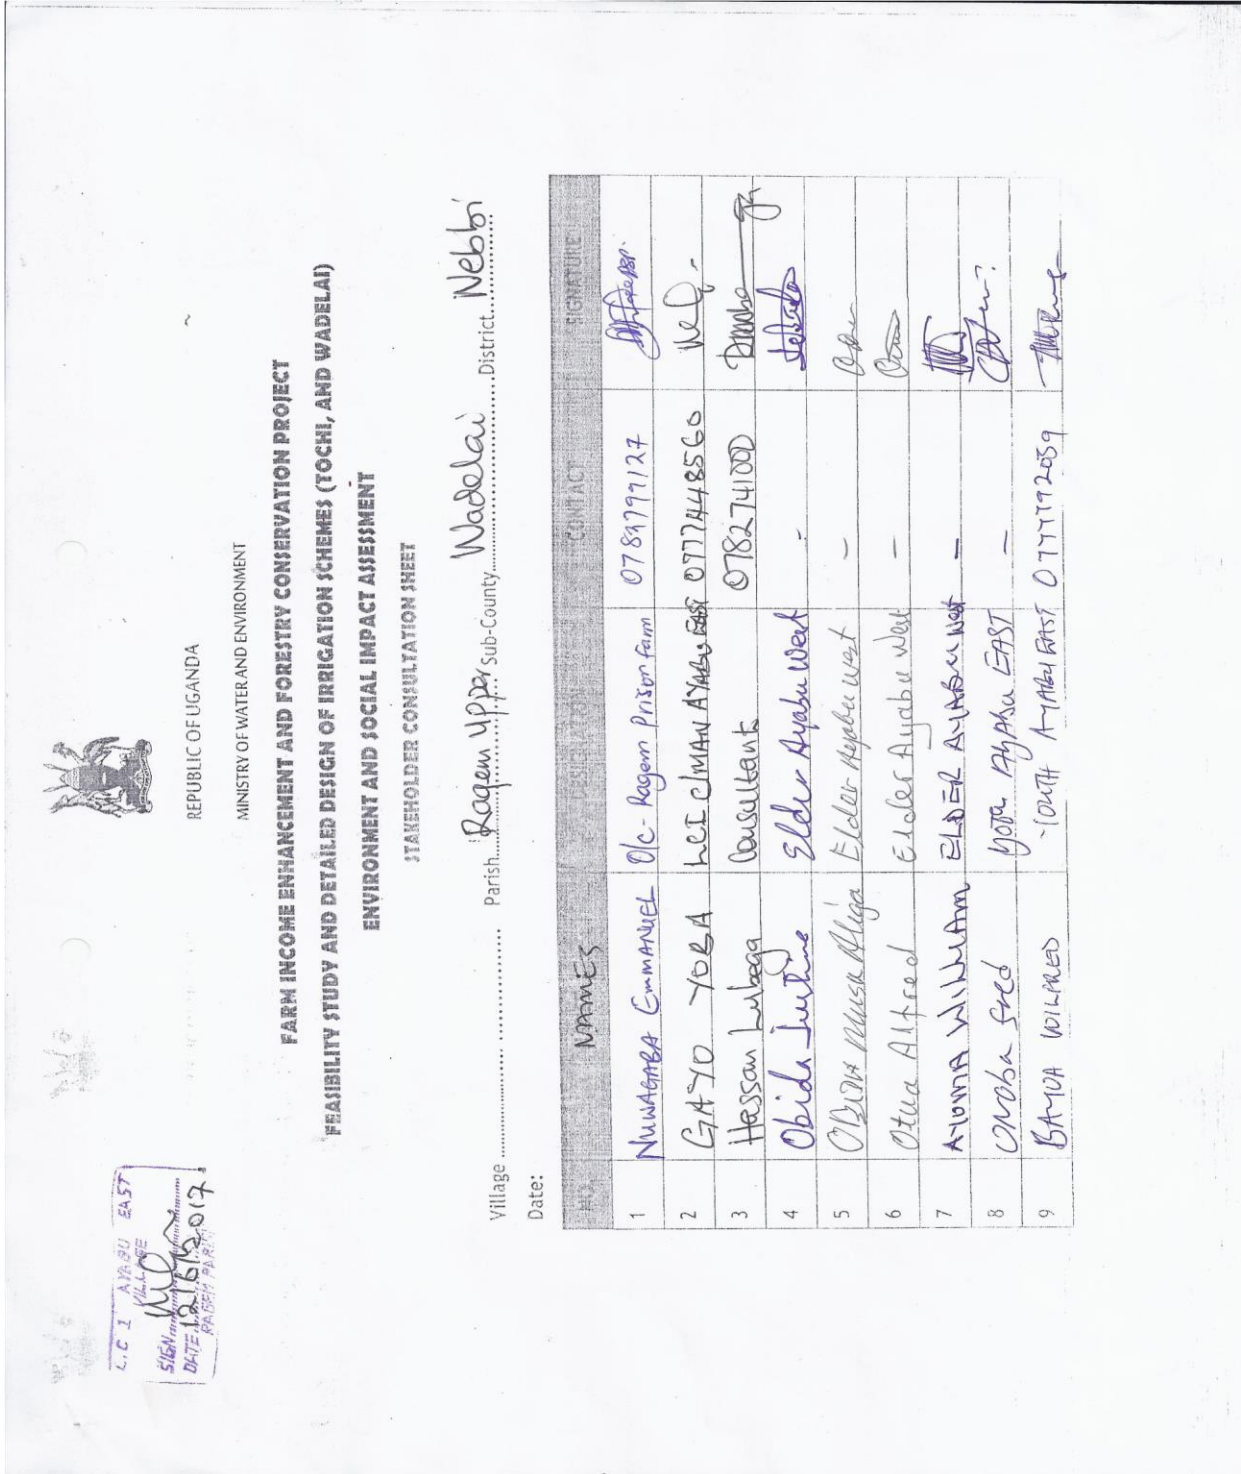 L.C 1 AYABU EAST
VILLAGE
SIGN
DATE 12/6/2017
RAGEM PARISH
REPUBLIC OF UGANDA
MINISTRY OF WATER AND ENVIRONMENT
FARM INCOME ENHANCEMENT AND FORESTRY CONSERVATION PROJECT
FEASIBILITY STUDY AND DETAILED DESIGN OF IRRIGATION SCHEMES (TOCHI, AND WADELAI)
ENVIRONMENT AND SOCIAL IMPACT ASSESSMENT
STAKEHOLDER CONSULTATION SHEET
Village .................... Parish Ragem Upper Sub-County Wadelai District Nebbi
Date:
NO. NAMES DESIGNATION CONTACT SIGNATURE
1 NUWAGABA EMMANUEL O/C - Ragem Prison Farm 0782799127
2 GAYO YOBA LCI C/MAN AYABU EAST 0777448560
3 Hassan Lubega Consultant 078274100
4 Obida Elder Ayabu West -
5 Elder West -
6 Otua Alfred Elder Ayabu West -
7 AYOMA WILLIAM ELDER AYABU West -
8 Onoba fred EAST -
9 BAMUA WILFRED YOUTH AYABU EAST 0777792059